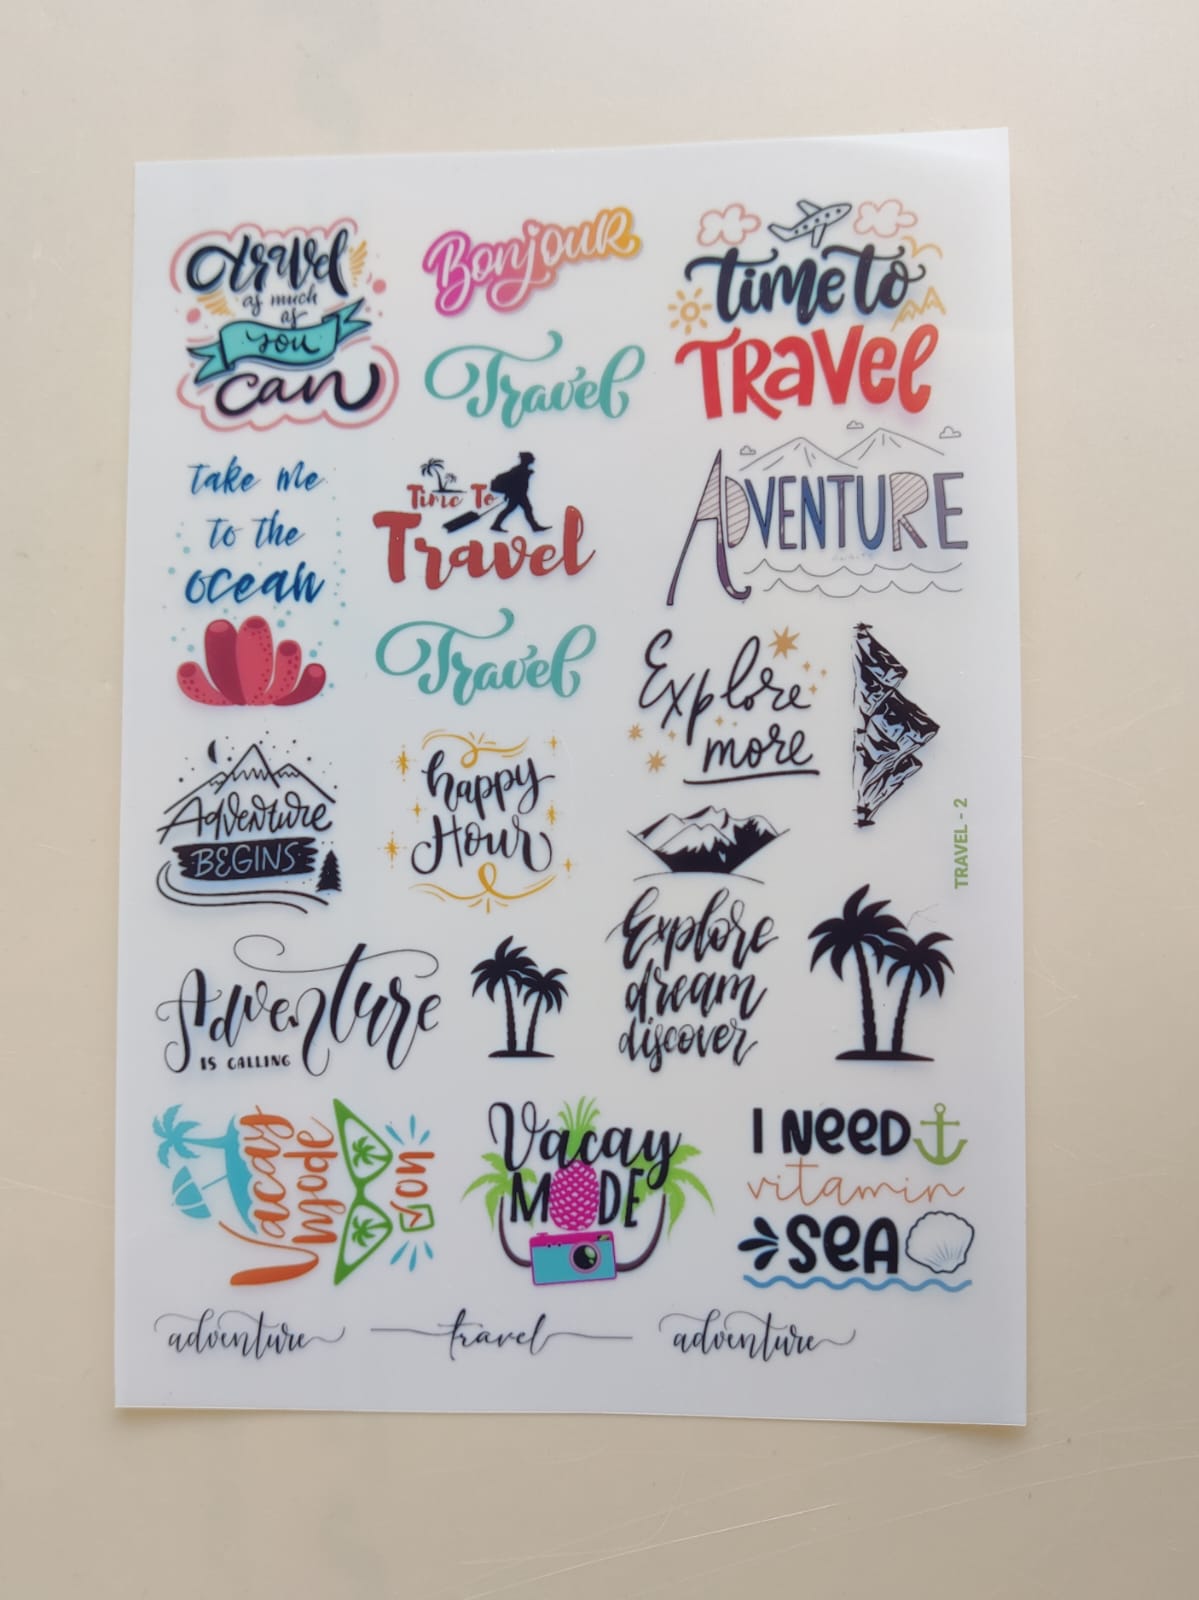 travel
as much
as
you
can
Bonjour
Travel
time to
Travel
take me
to the
ocean
Time To
Travel
ADVENTURE
Travel
Explore
more
Adventure
BEGINS
happy
Hour
TRAVEL - 2
Explore
dream
discover
Adventure
IS CALLING
Vacay
mode
on
Vacay
MODE
I NEED
vitamin
SEA
adventure
travel
adventure